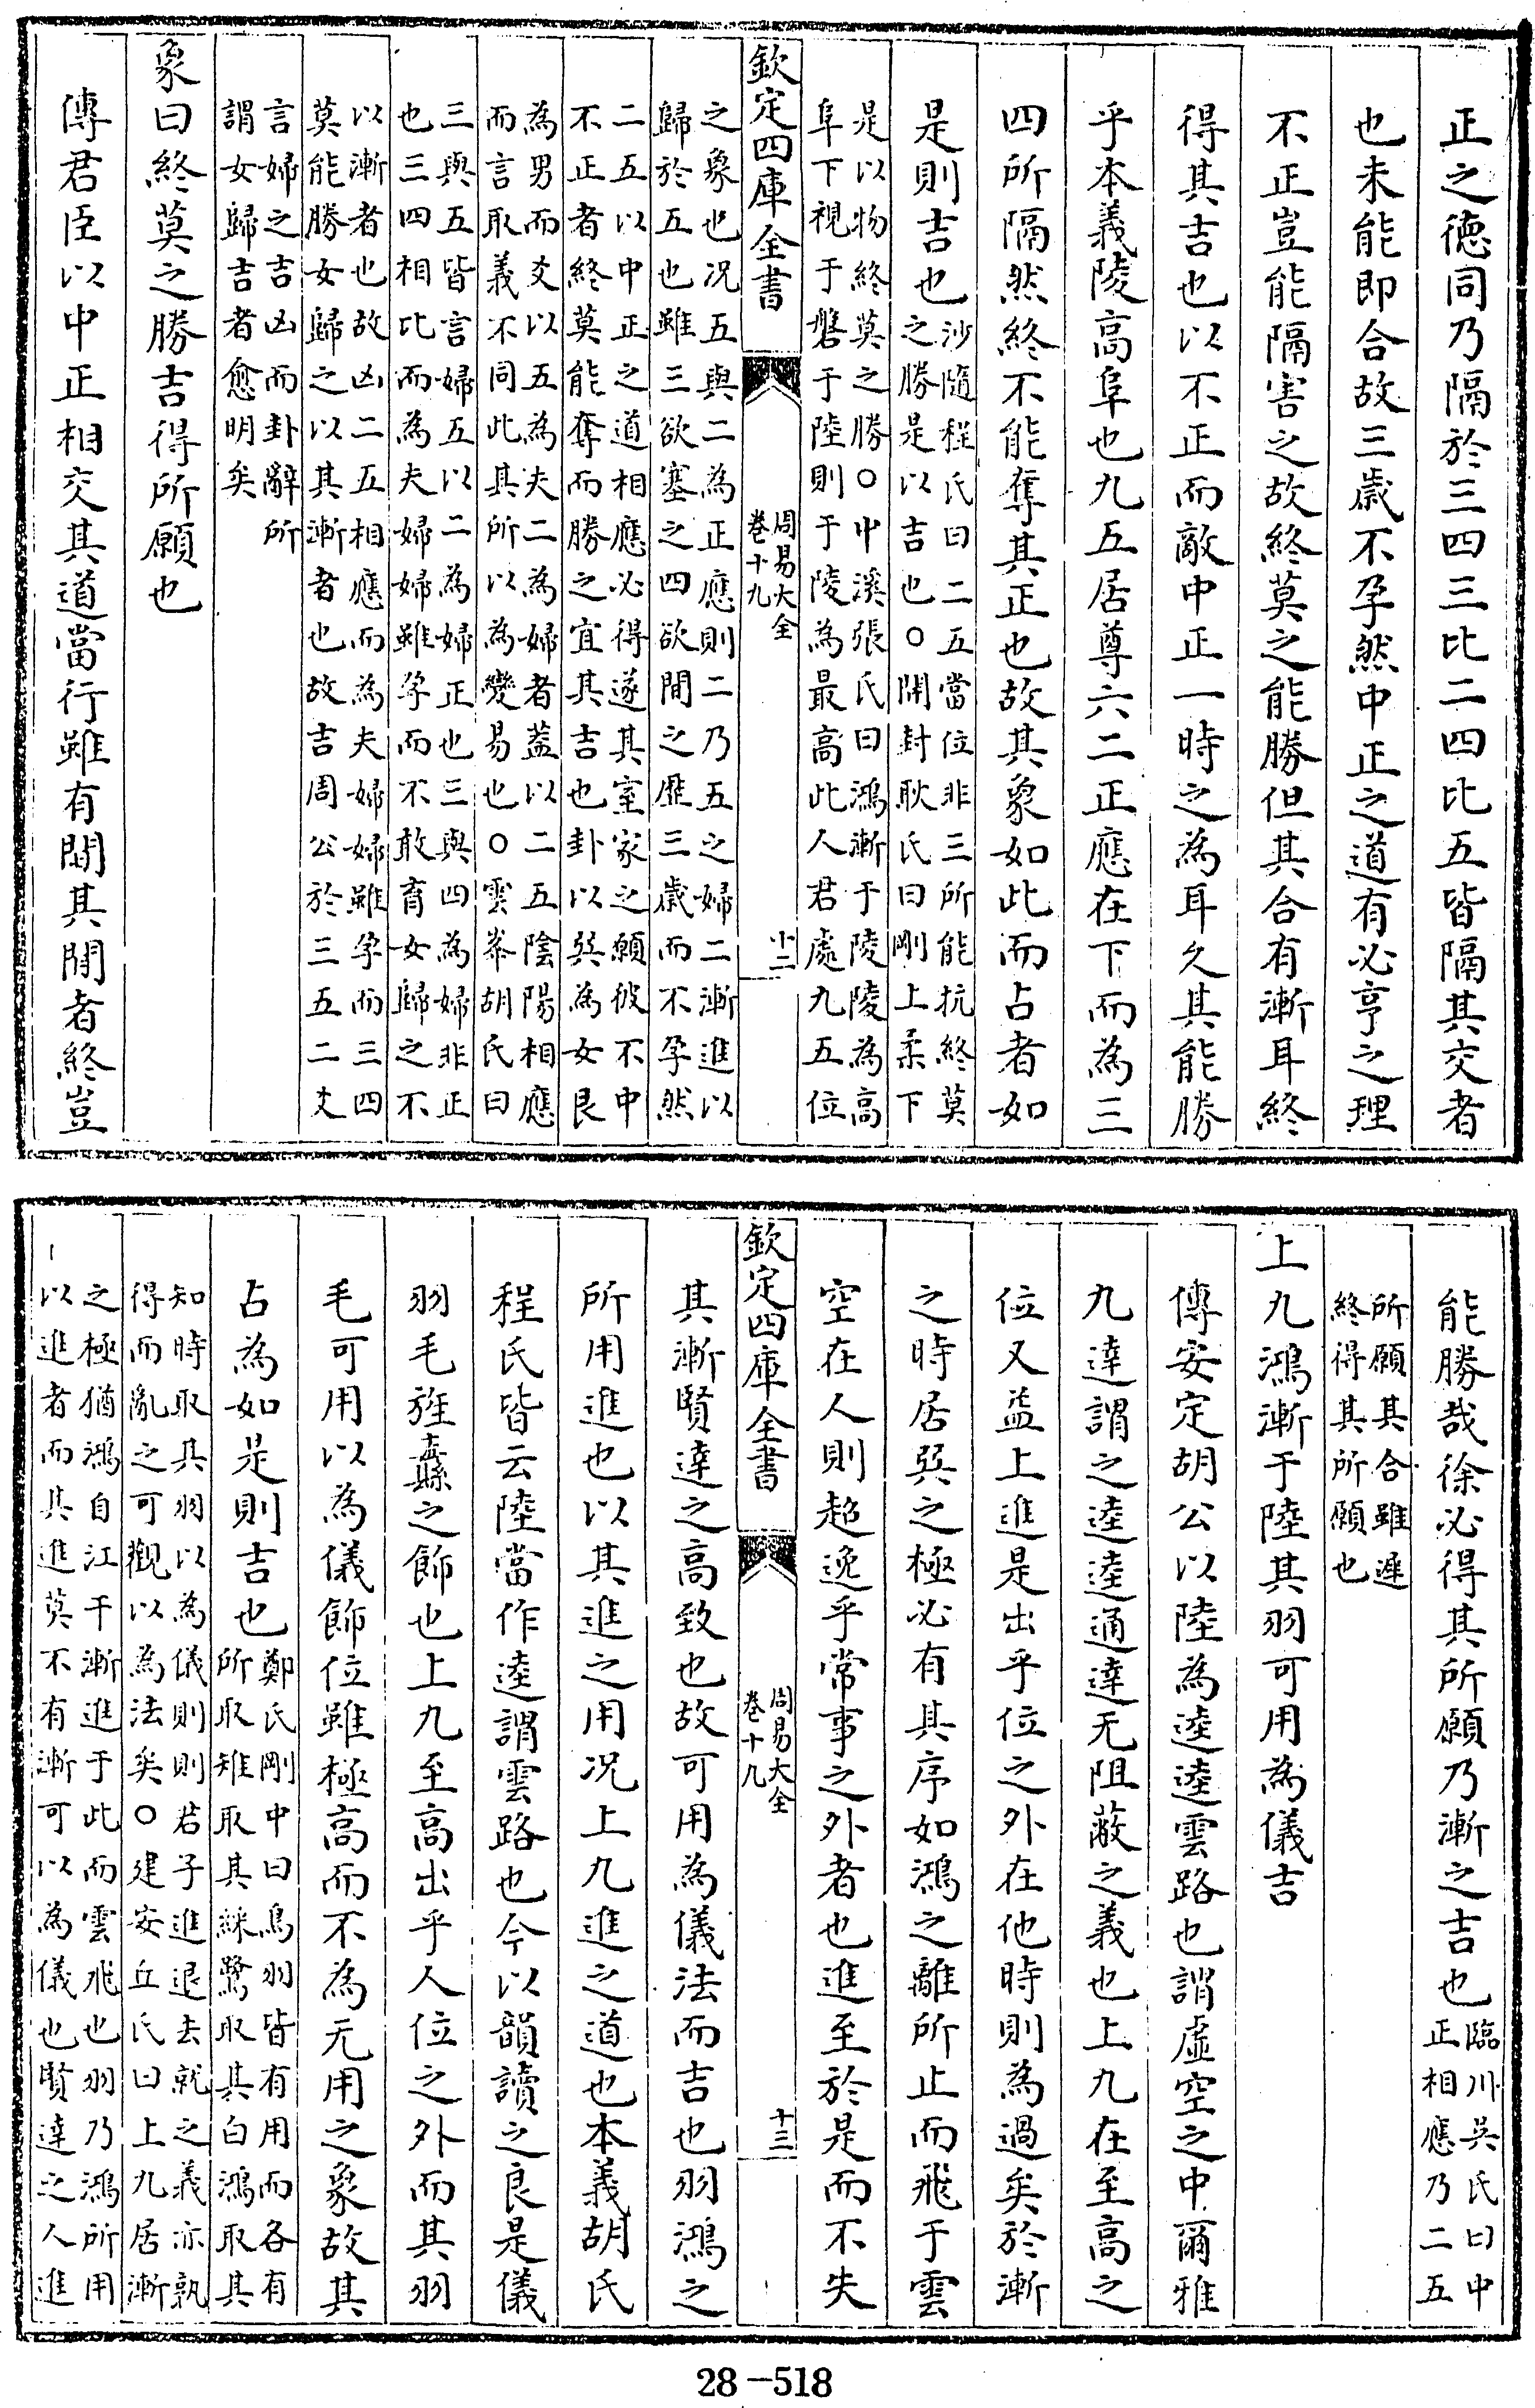 正之德同乃隔於三四三比二四比五皆隔其交者
也未能即合故三歲不孕然中正之道有必亨之理
不正豈能隔害之故終莫之能勝但其合有漸耳終
得其吉也以不正而敵中正一時之為耳久其能勝
乎本義陵高阜也九五居尊六二正應在下而為三
四所隔然終不能奪其正也故其象如此而占者如
是則吉也
沙隨程氏曰二五當位非三所能抗終莫
之勝是以吉也○開封耿氏曰剛上柔下
是以物終莫之勝○中溪張氏曰鴻漸于陵陵為高
阜下視于磐于陸則于陵為最高此人君處九五位
欽定四庫全書
周易大全
卷十九
十二
之象也况五與二為正應則二乃五之婦二漸進以
歸於五也雖三欲塞之四欲間之厯三歲而不孕然
二五以中正之道相應必得遂其室家之願彼不中
不正者終莫能奪而勝之宜其吉也卦以巽為女艮
為男而爻以五為夫二為婦者蓋以二五陰陽相應
而言取義不同此其所以為變易也○雲峯胡氏曰
三與五皆言婦五以二為婦正也三與四為婦非正
也三四相比而為夫婦婦雖孕而不敢育女歸之不
以漸者也故凶二五相應而為夫婦婦雖孕而三四
莫能勝女歸之以其漸者也故吉周公於三五二爻
言婦之吉凶而卦辭所
謂女歸吉者愈明矣
象曰終莫之勝吉得所願也
傳君臣以中正相交其道當行雖有間其間者終豈
能勝哉徐必得其所願乃漸之吉也
臨川吳氏曰中
正相應乃二五
所願其合雖遲
終得其所願也
上九鴻漸于陸其羽可用為儀吉
傳安定胡公以陸為逵逵雲路也謂虛空之中爾雅
九達謂之逵逵通達无阻蔽之義也上九在至高之
位又益上進是出乎位之外在他時則為過矣於漸
之時居巽之極必有其序如鴻之離所止而飛于雲
空在人則超逸乎常事之外者也進至於是而不失
欽定四庫全書
周易大全
卷十九
十三
其漸賢達之高致也故可用為儀法而吉也羽鴻之
所用進也以其進之用况上九進之道也本義胡氏
程氏皆云陸當作逵謂雲路也今以韻讀之良是儀
羽毛旌纛之飾也上九至高出乎人位之外而其羽
毛可用以為儀飾位雖極高而不為无用之象故其
占為如是則吉也
鄭氏剛中曰鳥羽皆有用而各有
所取雉取其綵鷺取其白鴻取其
知時取其羽以為儀則則君子進退去就之義亦孰
得而亂之可觀以為法矣○建安丘氏曰上九居漸
之極猶鴻自江干漸進于此而雲飛也羽乃鴻所用
以進者而其進莫不有漸可以為儀也賢達之人進
28-518